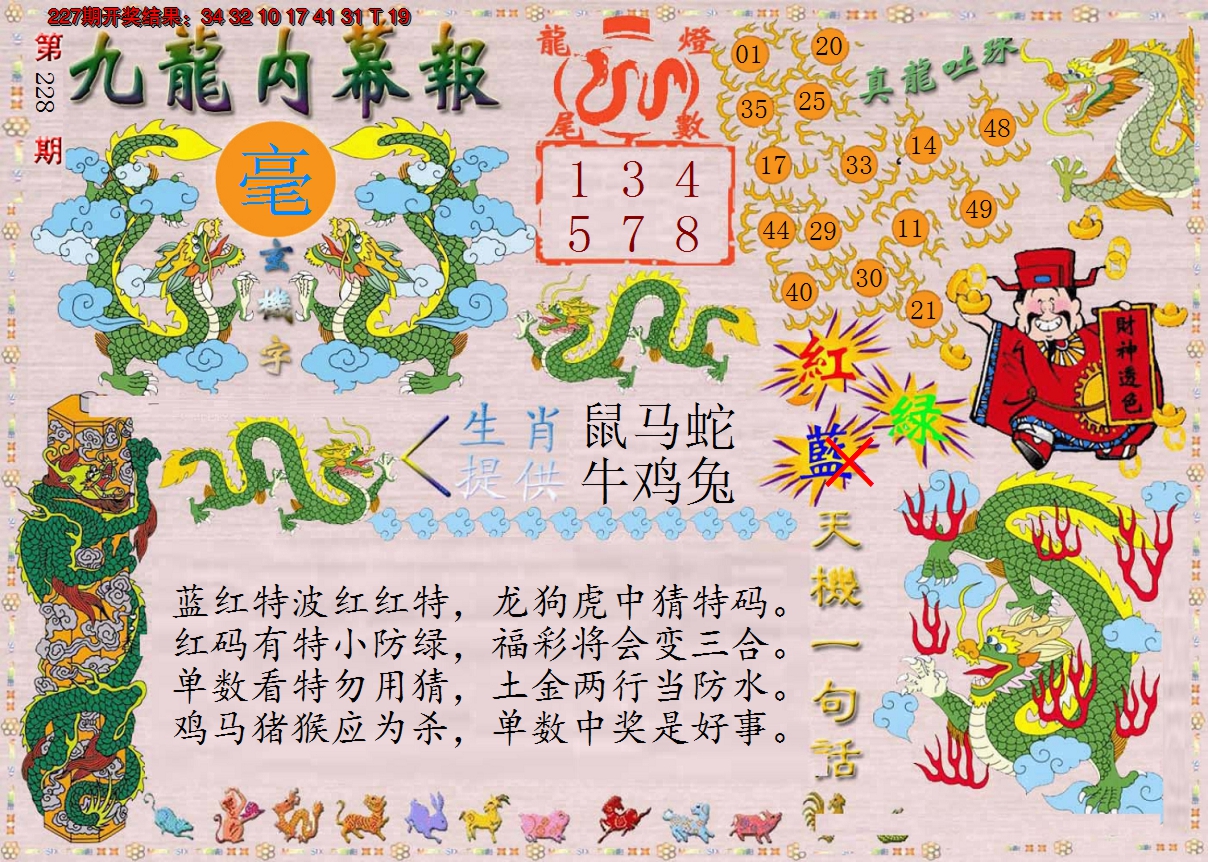 227期开奖结果：34 32 10 17 41 31 T 19
第
228
期
九龍内幕報
毫
玄
機
字
龍 燈
尾 數
1 3 4
5 7 8
真龍吐珠
01 20
35 25
17 33 14 48
44 29 11 49
40 30 21
財神透色
紅
绿
藍
生肖
提供
鼠马蛇
牛鸡兔
天機一句话
蓝红特波红红特，龙狗虎中猜特码。
红码有特小防绿，福彩将会变三合。
单数看特勿用猜，土金两行当防水。
鸡马猪猴应为杀，单数中奖是好事。